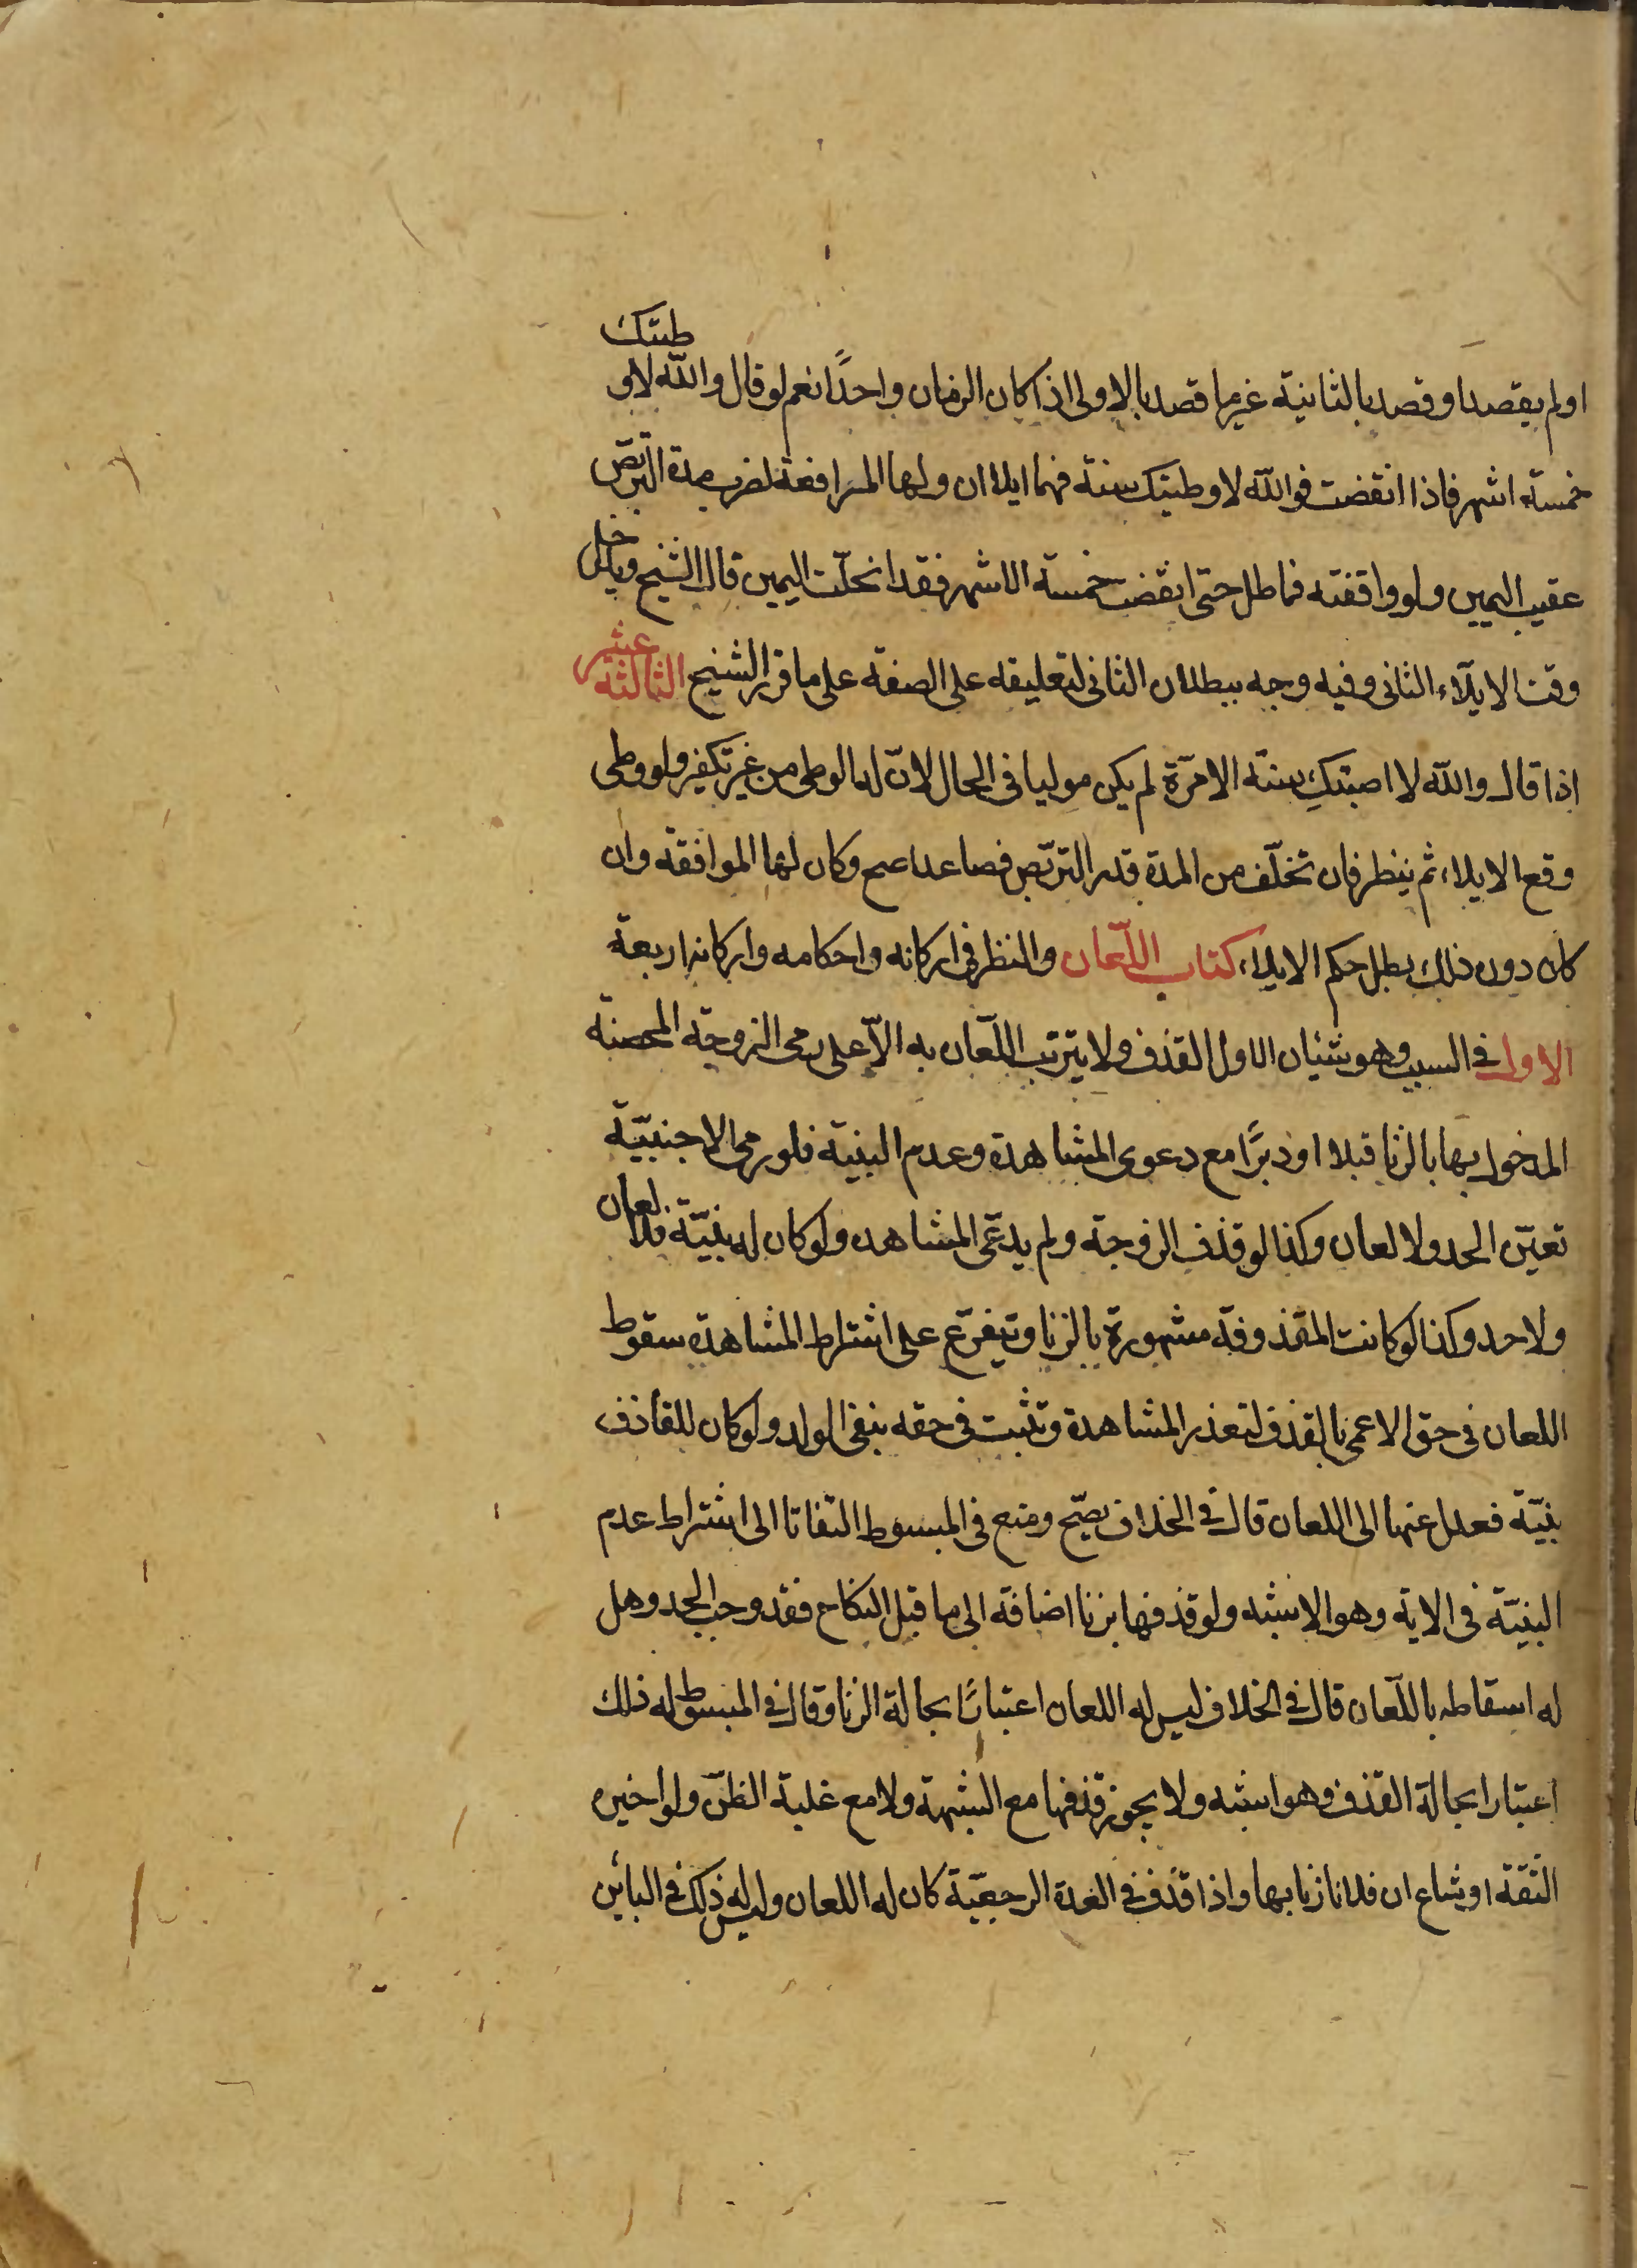 او لم يقصد او قصد بالثانية غير ما قصد بالاولى اذا كان الزمان واحدًا نعم لو قال والله لا وطيتك
خمسة اشهر فاذا انقضت فوالله لا وطيتك سنة فهما ايلاان ولها المرافعة لضرب مدة التربّص
عقيب اليمين ولو واقفته فماطل حتى انقضت خمسة الاشهر فقد انحلّت اليمين قال الشيخ ويدخل
وقت الايلآء الثانى وفيه وجه ببطلان الثانى لتعليقه على الصفة على ما قرر الشيخ الثالثة عشر
اذا قال والله لا اصبتكِ سنة الا مرّة لم يكن موليا فى الحال لانّ له الوطى من غير تكفير ولو وطى
وقع الايلاء ثم ينظر فان تخلّف من المدة قدر التربّص فصاعدا صح وكان لها الموافقة وان
كان دون ذلك بطل حكم الايلاء كتاب اللّعان والنظر فى اركانه واحكامه واركانه اربعة
الاول فى السبب وهو شئيان الاول القذف ولا يترتب اللّعان به الاّ على رمى الزوجة المحصنة
المدخول بها بالزنا قبلا او دبرًا مع دعوى المشاهدة وعدم البنية فلو رمى الاجنبيّة
تعيّن الحد ولا لعان وكذا لو قذف الزوجة ولم يدعّى المشاهده ولو كان له بنيّة فلا لعان
ولا حد وكذا لو كانت المقذوفة مشهورة بالزنا ويتفرّع على اشتراط المشاهدة سقوط
اللعان فى حق الاعمى بالقذف لتعذر المشاهدة وتثبت فى حقه بنفى الولد ولو كان للقاذف
بنيّة فعدل عنها الى اللعان قال فى الخلاف يصّح ومنع فى المبسوط التفاتا الى اشتراط عدم
البنيّة فى الاية وهو الاشبه ولو قذفها بزنا اضافة الى ما قبل النكاح فقد وجب الحد وهل
له اسقاطه باللّعان قال فى الخلاف ليس له اللعان اعتبارًا بحالة الزنا وقال فى المبسوط له ذلك
اعتبارا بحالة القذف وهو اشبه ولا يجوز قذفها مع الشبهة ولا مع غلبة الظنّ ولو اخبره
الثقة او شاع ان فلانا زنا بها واذا قذف فى العدة الرجعيّة كان له اللعان وليس له ذلك فى البائن